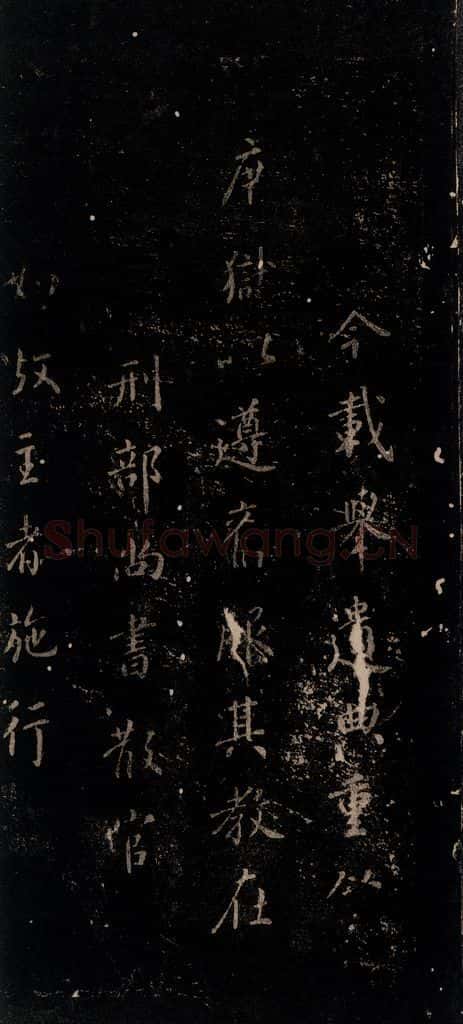 今載舉遺典重以
庶獄以遵舊服其教在
刑部尚書散官
如故主者施行
Shufawang.CN